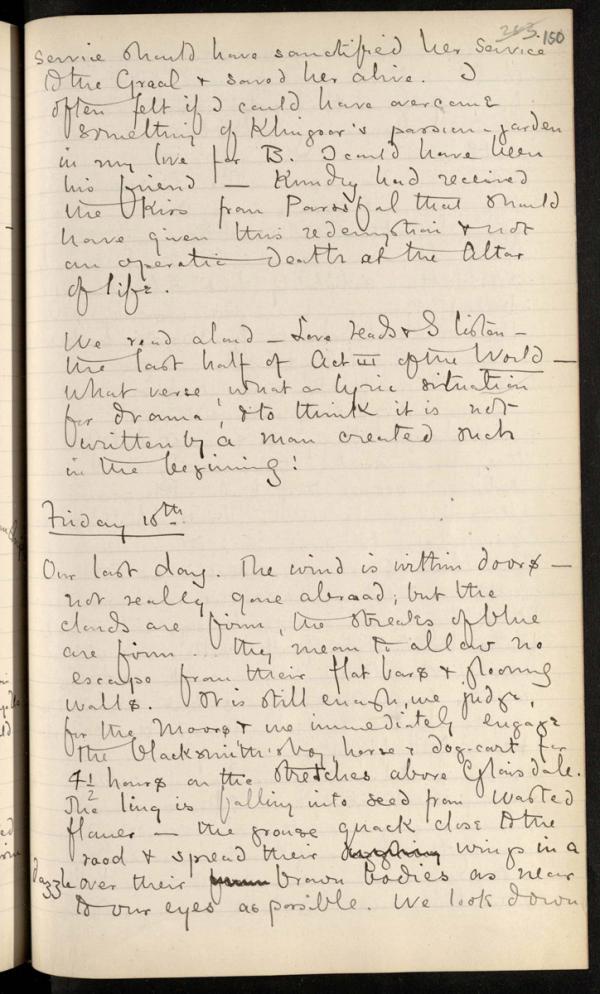 263. 150
service should have sanctified her service
to the Graal & saved her alive. I
often felt if I could have overcome
something of Khingsor's passion-garden
in my love for B. I could have been
his friend — Kundry had received
the Kiss from Parsifal that should
have given this redemption & not
an operatic Death at the Altar
of life.
We read aloud — Love reads & I listen —
the last half of Act III of the World —
what verse, what a lyric situation
for drama, & to think it is not
written by a man created such
in the beginning!
Friday 10th
Our last day. The wind is within doors —
not really gone abroad; but the
clouds are firm, the streaks of blue
are firm ... they mean to allow no
escape from their flat bars & flooring
walls. It is still enough, we judge,
for the Moors & we immediately engage
the blacksmith's boy, horse & dog-cart for
4½ hours on the stretches above Glaisdale.
The ling is falling into seed from wasted
flower — the grouse quack close to the
road & spread their wings in a
dazzle over their brown bodies as near
to our eyes as possible. We look down